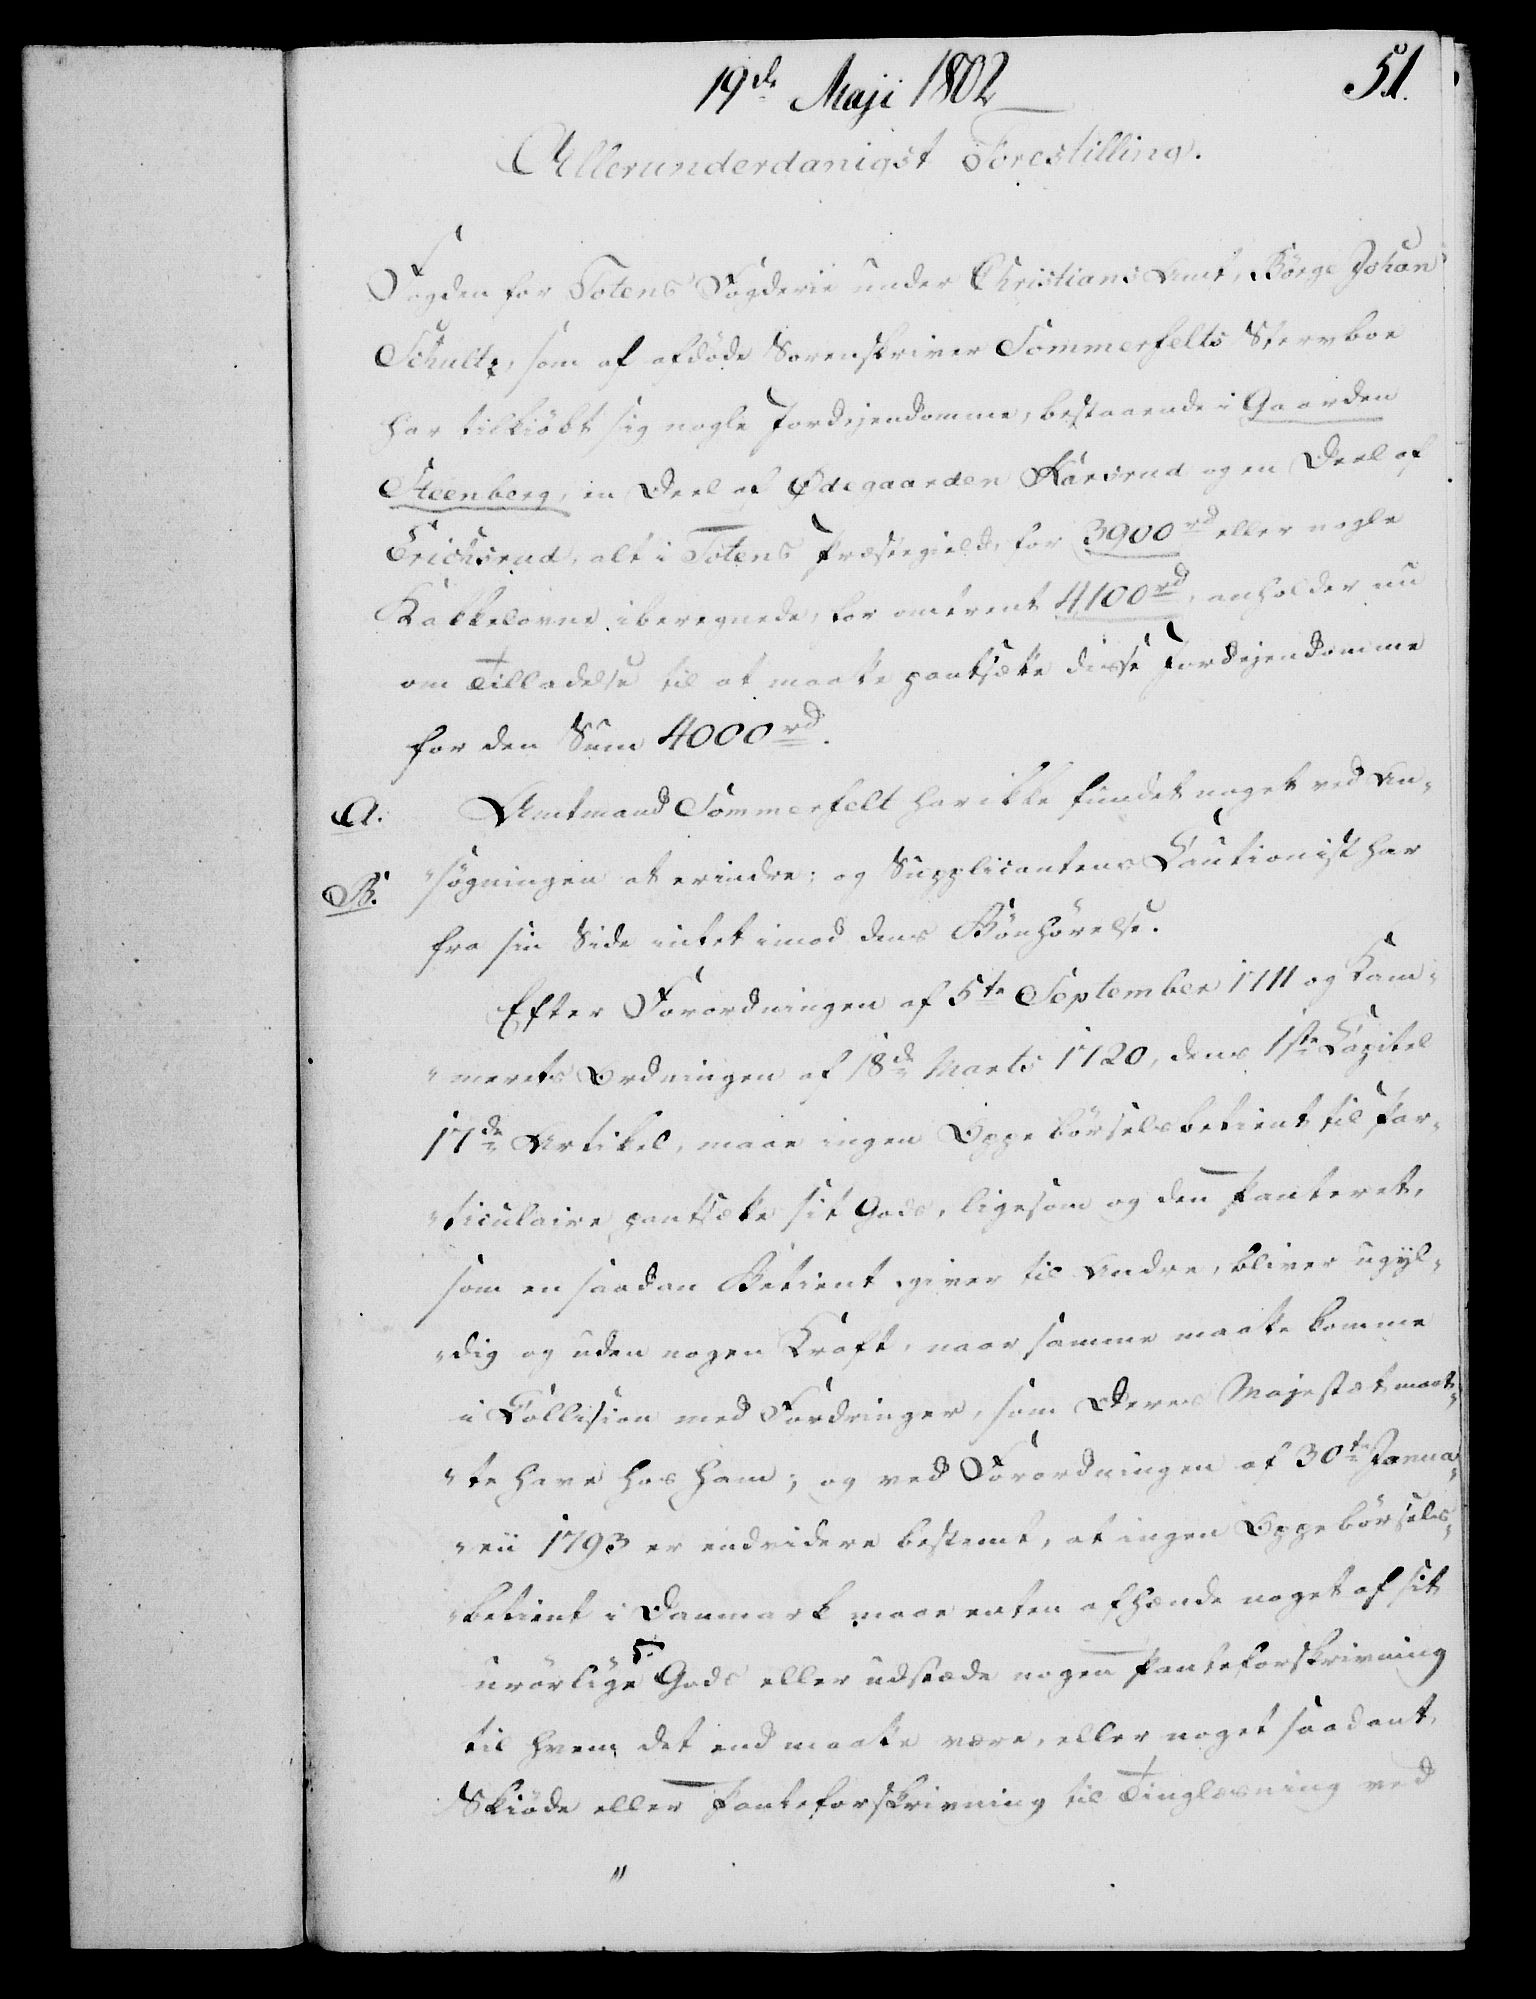 19de Maji 1802
51.
Allerunderdanigst Forestilling.
Fogden for Totens Fogderie under Christians Amt, Börge Johan
Schultz, som af afdöde Sorenskriver Sommerfelts Stervboe
har tilkiöbt sig nogle Jordejendomme, bestaaende i Gaarden
Steenberg, en Deel af Ødegaarden Karsrud og en Deel af
Erichsrud, alt i Totens Præstegield, for 3900rd eller nogle
Kakkelovne iberegnede, for omtrent 4100rd, anholder nu
om Tilladelse til at maatte pantsætte disse Jordejendomme
for den Sum 4000rd.
A. Amtmand Sommerfelt har ikke fundet noget ved An-
B. "søgningen at erindre; og Supplicantens Cautionist har
fra sin Side intet imod dens Bönhörelse.
Efter Forordningen af 5te September 1711 og Kam-
"merets Ordningen af 18de Marts 1720, dens 1ste Capitel
17de Artikel, maae ingen Oppebörselsbetient til Par-
"ticulaire pantsætte sit Gods, ligesom og den Panteret,
som en saadan Betient giver til Andre, bliver ugyl-
"dig og uden nogen Kraft, naar samme maatte komme
i Collision med Fordringer, som Deres Majestæt maat-
"te have hos ham; og ved Forordningen af 30te Janua-
"rii 1793 er endvidere bestemt, at ingen Oppebörsels-
"betient i Danmark maae enten afhænde noget af sit
urörlige Gods eller udstæde nogen Panteforskrivning
til hvem det end maatte være, eller noget saadant
Skiöde eller Panteforskrivning til Tinglæsning ved
"